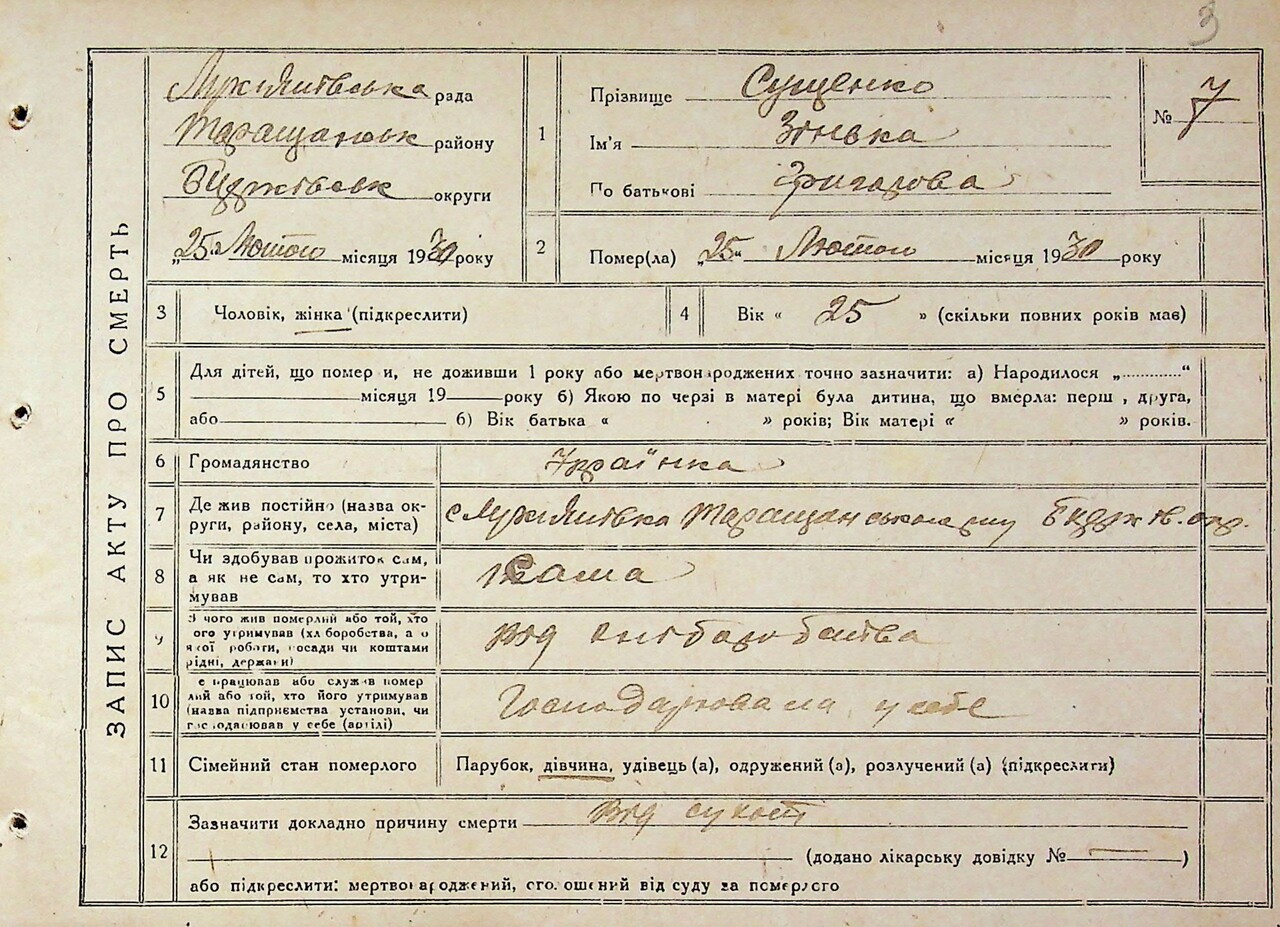 3
ЗАПИС АКТУ ПРО СМЕРТЬ
Лук'янівська рада
Таращанськ району
округи
„25“ Лютого місяця 1930 року
1
Прізвище Сущенко
Ім'я Зінька
По батькові Григорова
№ 7
2
Помер(ла) „25“ Лютого місяця 1930 року
3 Чоловік, жінка (підкреслити)
4 Вік « 25 » (скільки повних років мав)
5
Для дітей, що помер и, не доживши 1 року або мертвон роджених точно зазначити: а) Народилося „............“
місяця 19 року б) Якою по черзі в матері була дитина, що вмерла: перш , друга,
або б) Вік батька « » років; Вік матері « » років.
6 Громадянство Українка
7
Де жив постійно (назва ок-
руги, району, села, міста)
с Лук'янівка Таращанського р-ну окр.
8
Чи здобував прожиток сам,
а як не сам, то хто утри-
мував
Сама
9
З чого жив померлий або той, хто
ого утримував (хл боробства, а о
якої роботи, посади чи коштами
рідні, держави)
від хліборобства
10
е працював або служив помер
лий або той, хто його утримував
(назва підприємства установи, чи
господарював у себе (артілі)
Господарювала у себе
11 Сімейний стан померлого Парубок, дівчина, удівець (а), одружений (а), розлучений (а) (підкреслити)
12
Зазначити докладно причину смерти від сухот
(додано лікарську довідку № — )
або підкреслити: мертвонароджений, оголошений від суду за померлого